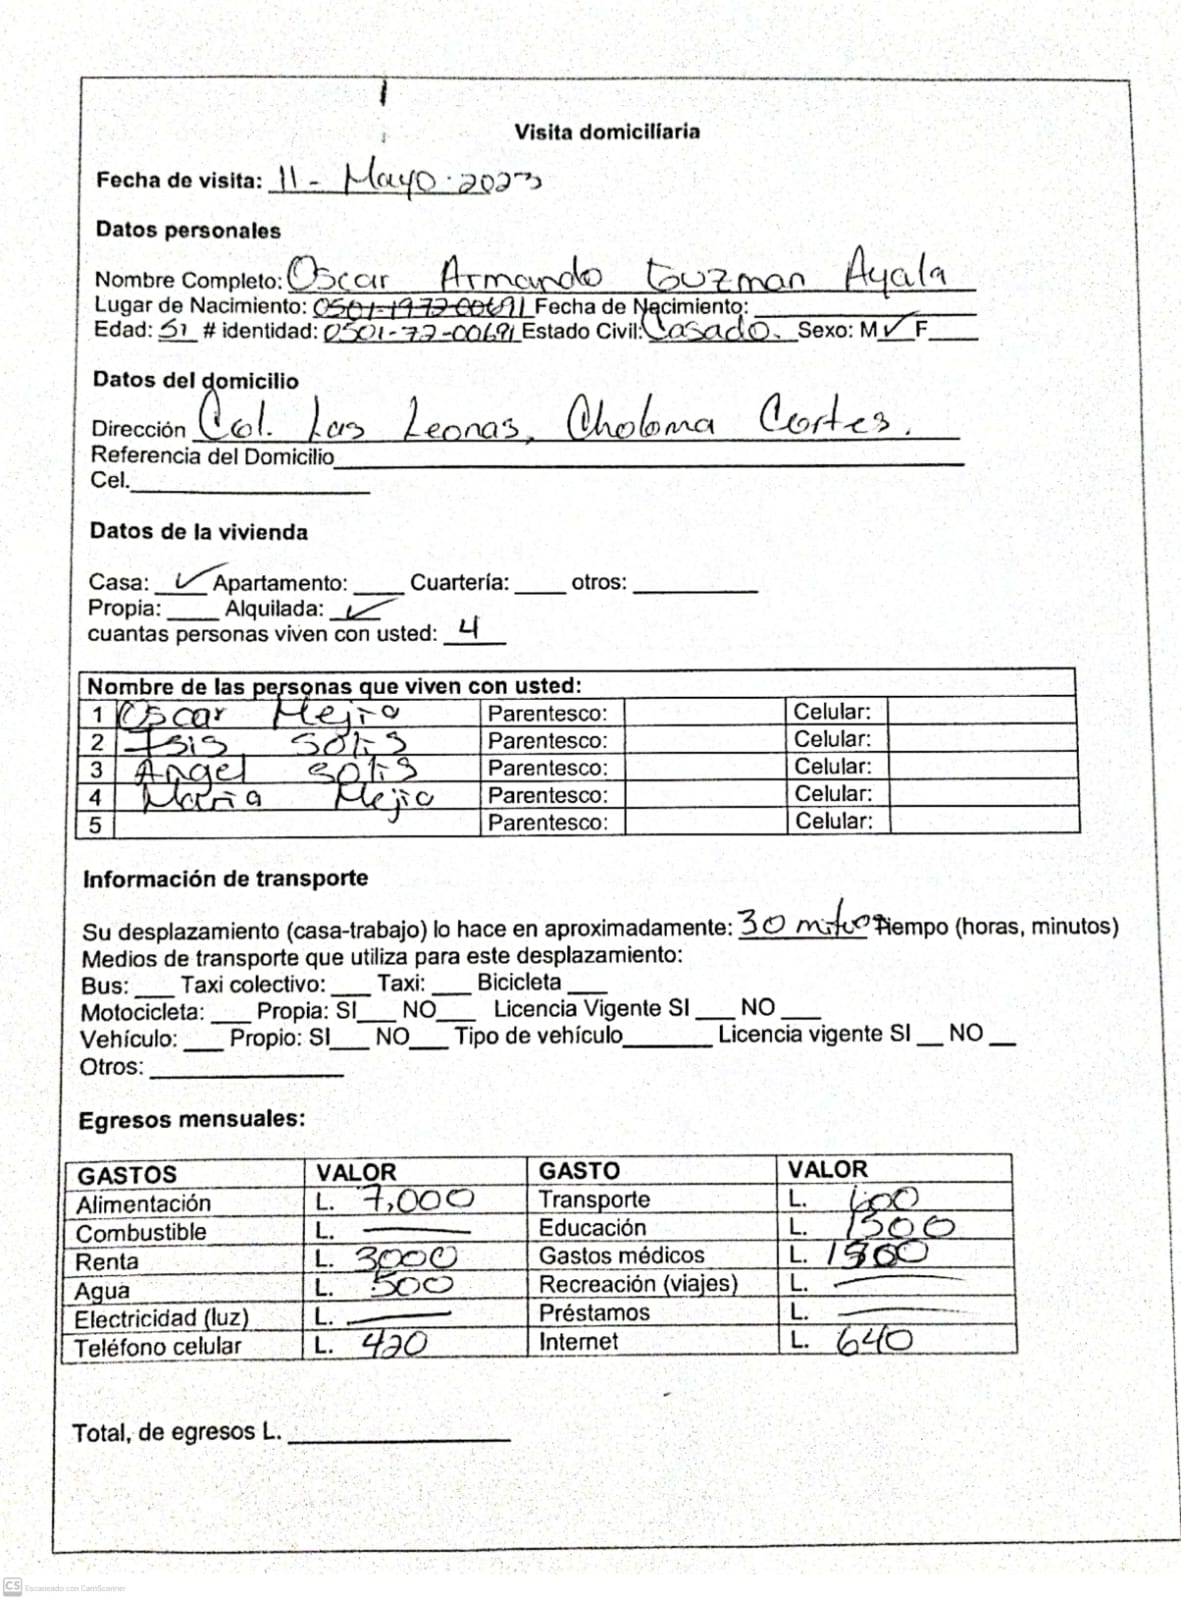 Visita domiciliaria
Fecha de visita: 11 - Mayo . 2023
Datos personales
Nombre Completo: Oscar Armando Guzman Ayala
Lugar de Nacimiento: 0501-1972-00691 Fecha de Nacimiento: ____
Edad: 51 # identidad: 0501-72-00691 Estado Civil: Casado. Sexo: M ✓ F ____
Datos del domicilio
Dirección Col. Las Leonas, Choloma Cortes.
Referencia del Domicilio ____
Cel. ____
Datos de la vivienda
Casa: ✓ Apartamento: ____ Cuartería: ____ otros: ____
Propia: ____ Alquilada: ✓
cuantas personas viven con usted: 4
Nombre de las personas que viven con usted:
1 Oscar Mejia Parentesco: Celular:
2 Isis Solis Parentesco: Celular:
3 Angel Solis Parentesco: Celular:
4 Maria Mejia Parentesco: Celular:
5 Parentesco: Celular:
Información de transporte
Su desplazamiento (casa-trabajo) lo hace en aproximadamente: 30 Tiempo (horas, minutos)
Medios de transporte que utiliza para este desplazamiento:
Bus: ____ Taxi colectivo: ____ Taxi: ____ Bicicleta ____
Motocicleta: ____ Propia: SI ____ NO ____ Licencia Vigente SI ____ NO ____
Vehículo: ____ Propio: SI ____ NO ____ Tipo de vehículo ____ Licencia vigente SI __ NO __
Otros: ____
Egresos mensuales:
GASTOS VALOR GASTO VALOR
Alimentación L. 7,000 Transporte L. 600
Combustible L. — Educación L. 1500
Renta L. 3000 Gastos médicos L.
Agua L. 500 Recreación (viajes) L. —
Electricidad (luz) L. — Préstamos L. —
Teléfono celular L. 420 Internet L. 640
Total, de egresos L. ____
CS Escaneado con CamScanner